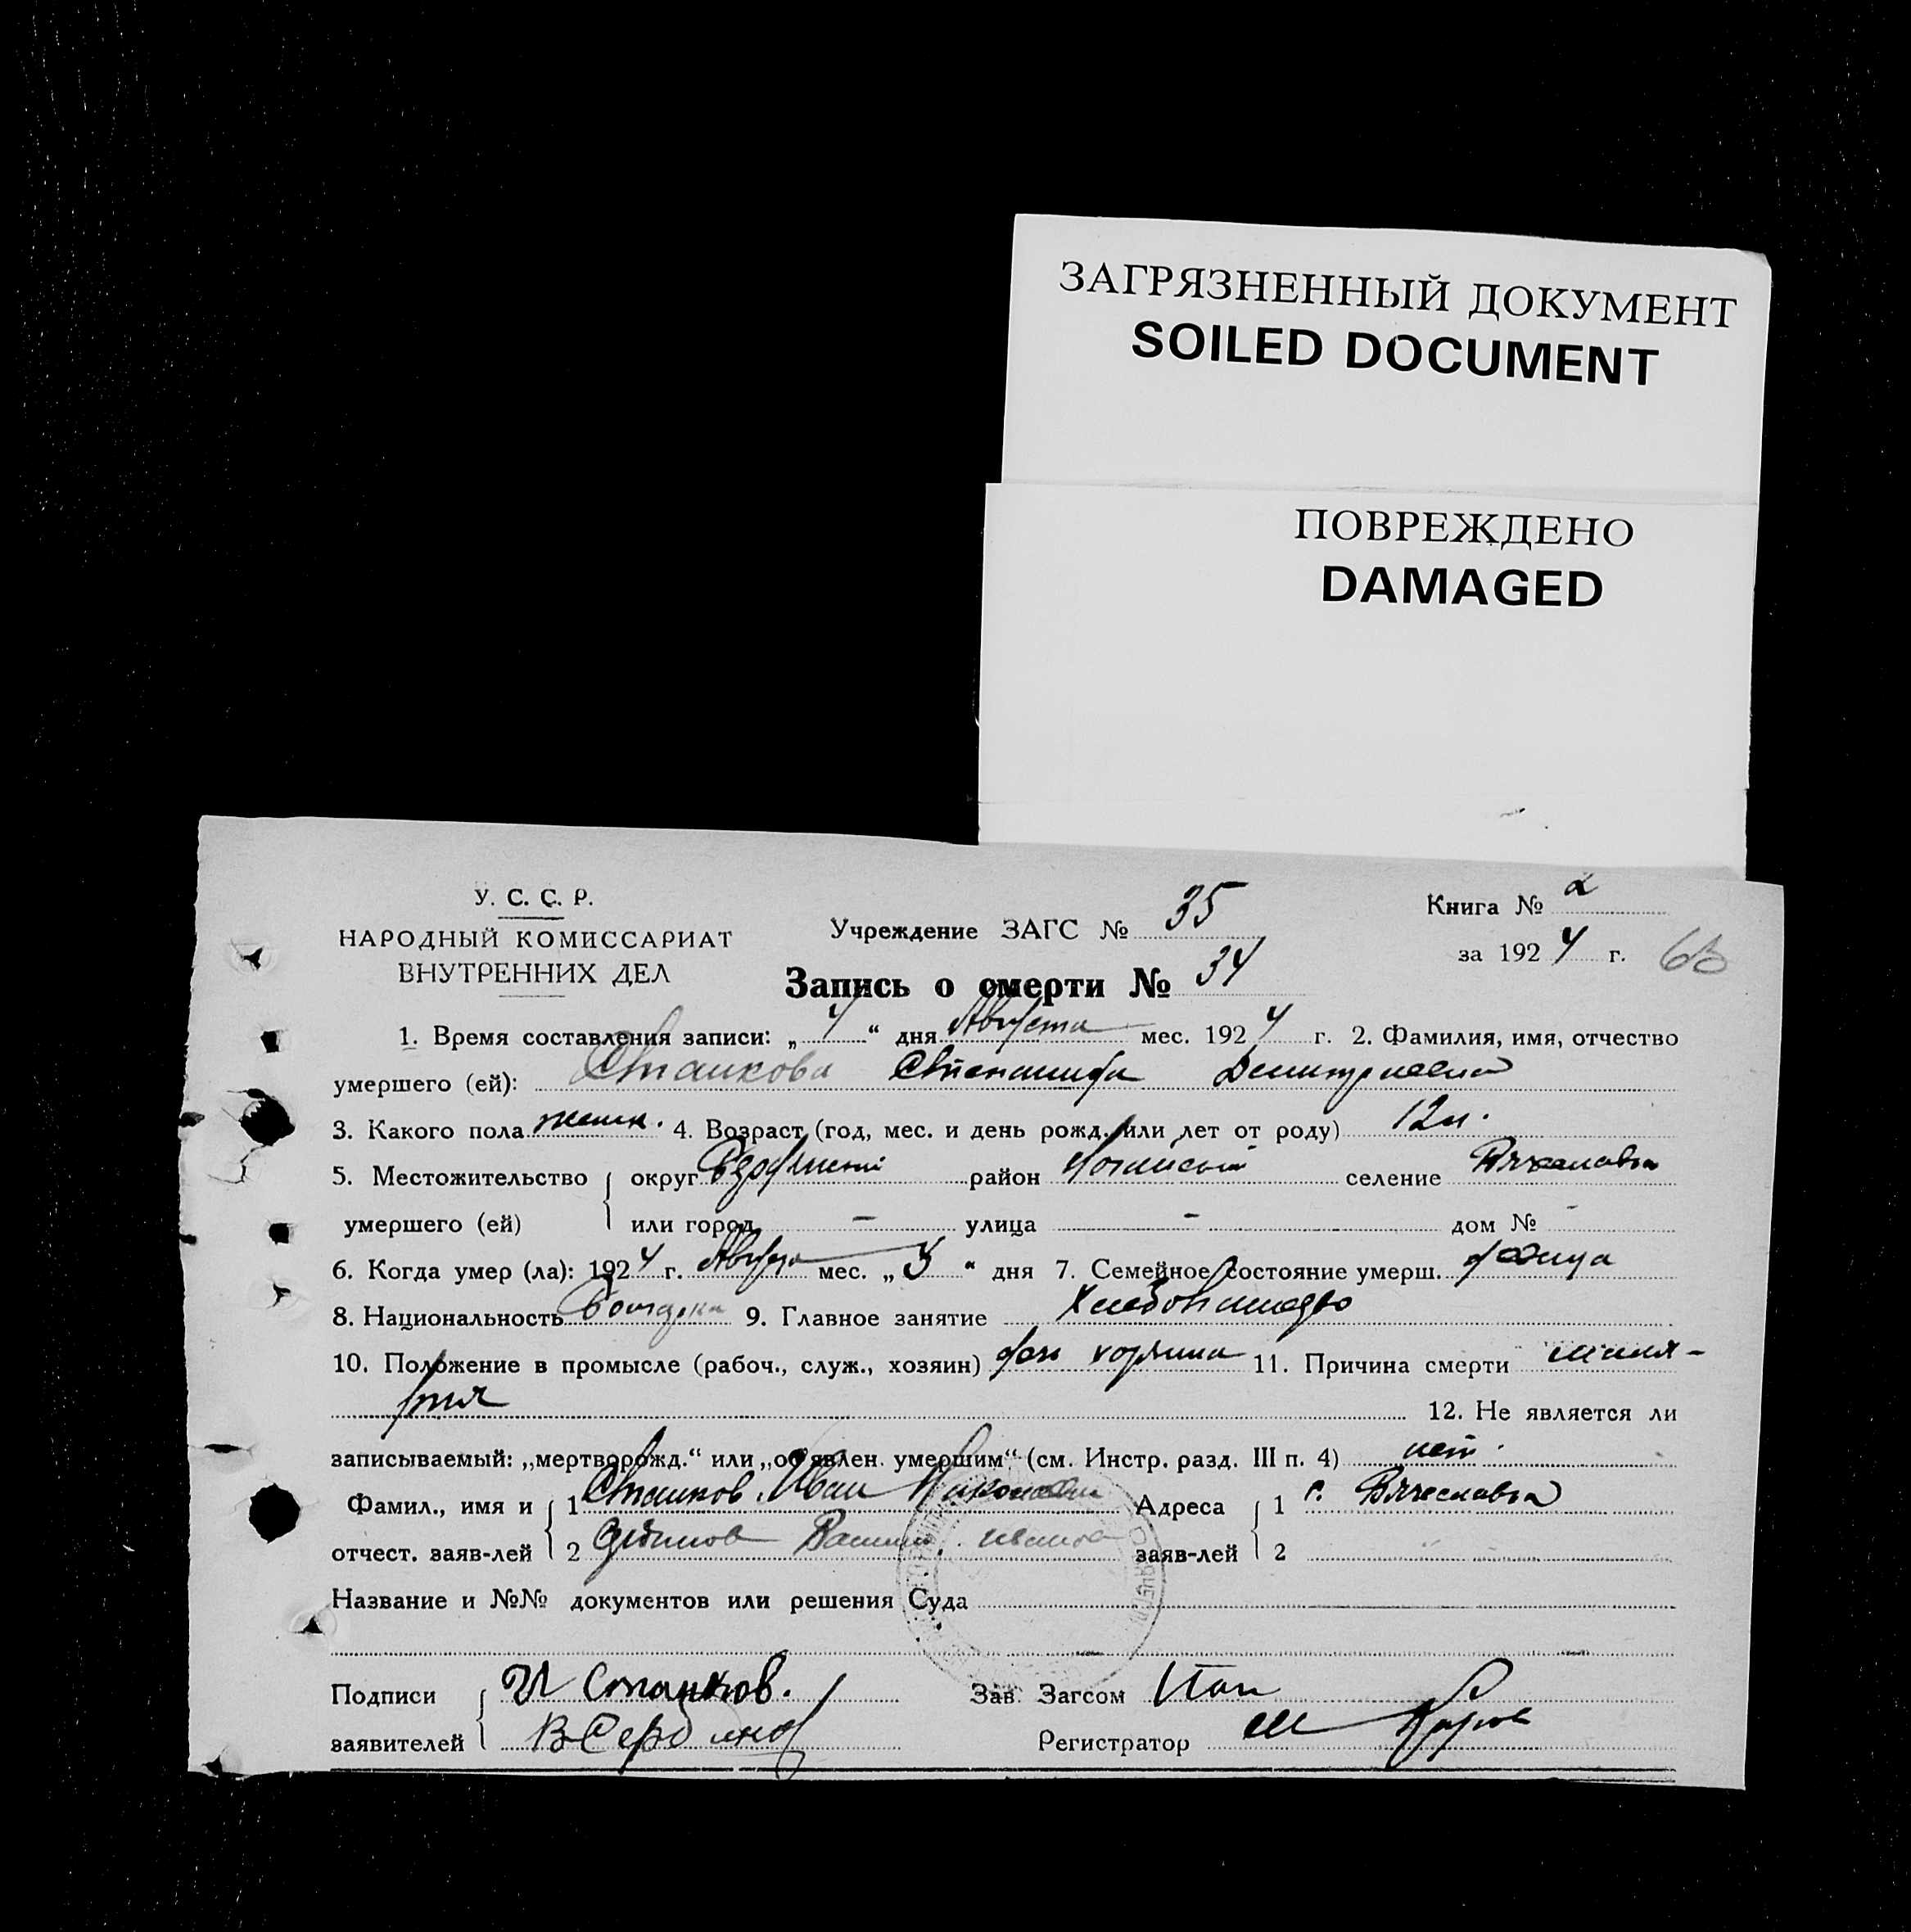 ЗАГРЯЗНЕННЫЙ ДОКУМЕНТ
SOILED DOCUMENT
ПОВРЕЖДЕНО
DAMAGED
У. С. С. Р.
НАРОДНЫЙ КОМИССАРИАТ
ВНУТРЕННИХ ДЕЛ
Учреждение ЗАГС № 35
Книга № 2
за 1924 г.
Запись о смерти № 34
1. Время составления записи: „ 4 “ дня Августа мес. 1924 г. 2. Фамилия, имя, отчество
умершего (ей): Станкова Степанида
3. Какого пола женск. 4. Возраст (год, мес. и день рожд. или лет от роду) 12 л.
5. Местожительство округ район селение
умершего (ей) или город - улица - дом № -
6. Когда умер (ла): 1924 г. Августа мес. „ 3 “ дня 7. Семейное состояние умерш. девица
8. Национальность Болгарка 9. Главное занятие Хлебопашество
10. Положение в промысле (рабоч., служ., хозяин) дочь хозяина 11. Причина смерти
12. Не является ли
записываемый: „мертворожд.“ или „об'явлен. умершим“ (см. Инстр. разд. III п. 4) нет.
Фамил., имя и 1 Станков Иван Адреса 1 с. Вячеславка
отчест. заяв-лей 2 заяв-лей 2
Название и №№ документов или решения Суда
Подписи И Станков. Зав. Загсом
заявителей В Сербинов Регистратор